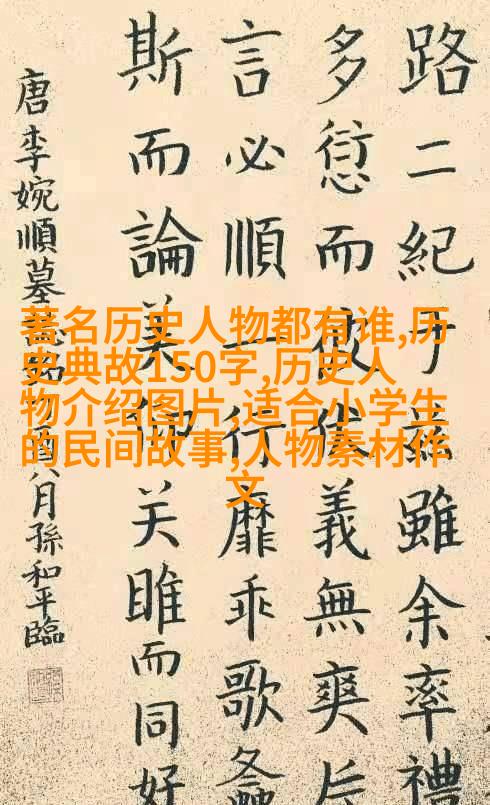 著名历史人物都有谁,历
史典故150字,历史人
物介绍图片,适合小学生
的民间故事,人物素材作
文
路二紀于茲雖余率禮
多愆而義無爽
言必順一行靡乖歌
斯而論美關睢而同好
唐李婉順墓志酉八月孫和平臨